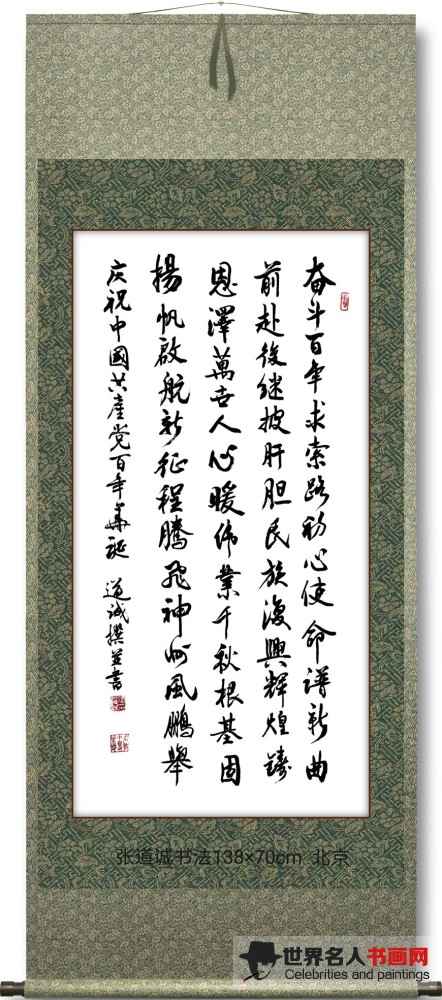 奋斗百年求索路初心使命谱新曲
前赴後继披肝胆民族復興辉煌铸
恩澤萬古人心暖伟業千秋根基固
揚帆啟航新征程腾飛神州風鹏舉
庆祝中國共產党百年華诞 道诚撰并書
张道诚书法138×70cm 北京
世界名人书画网
Celebrities and paintings